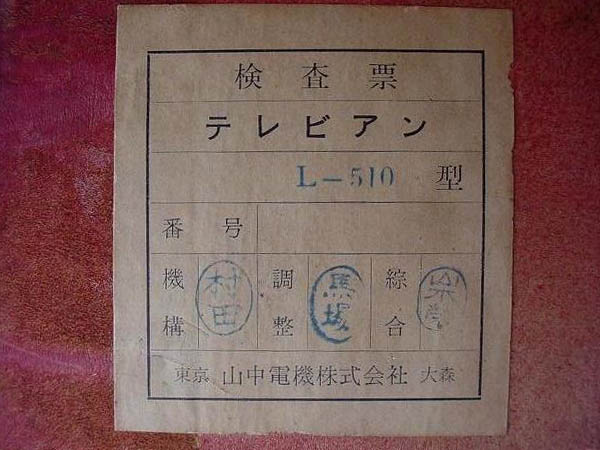 検査票
テレビアン
L-510 型
番号
機構 村田 調整 馬場 綜合
東京 山中電機株式会社 大森